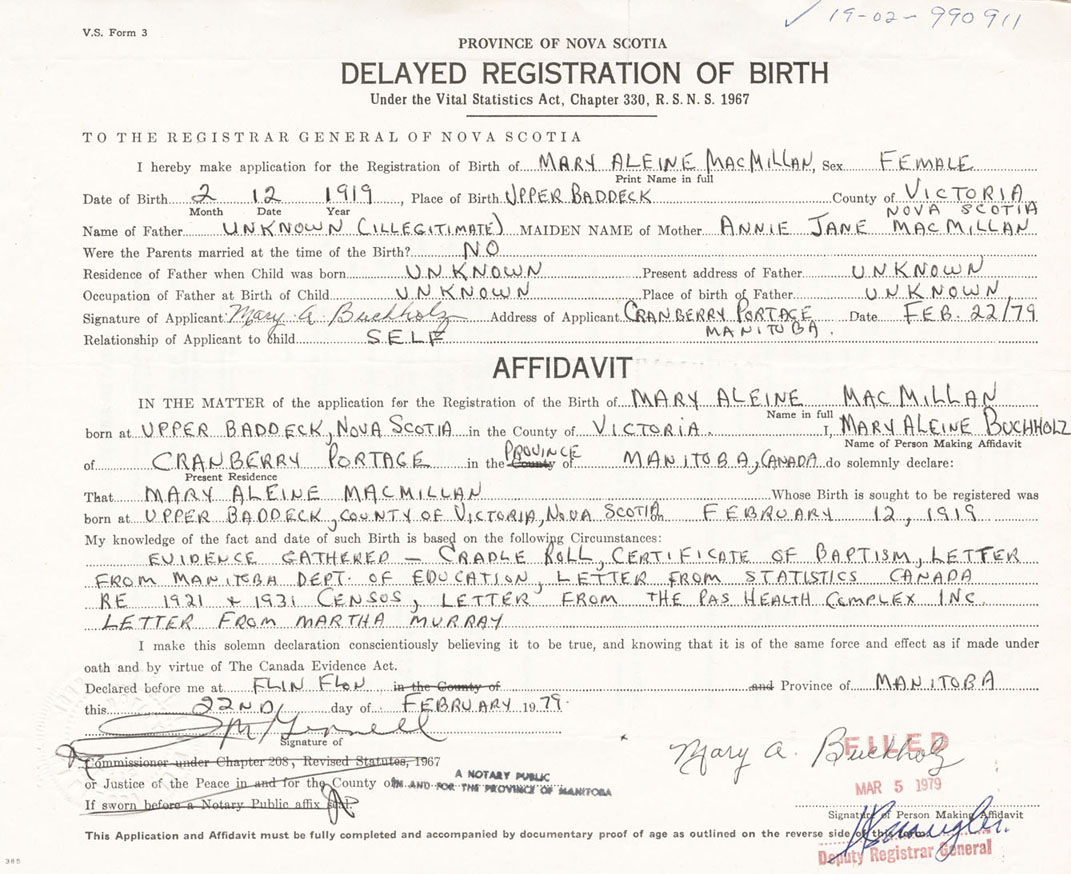 V.S. Form 3
✓ 19-02-990911
PROVINCE OF NOVA SCOTIA
DELAYED REGISTRATION OF BIRTH
Under the Vital Statistics Act, Chapter 330, R.S.N.S. 1967
TO THE REGISTRAR GENERAL OF NOVA SCOTIA
I hereby make application for the Registration of Birth of MARY ALEINE MACMILLAN, Sex FEMALE
Print Name in full
Date of Birth 2 12 1919, Place of Birth UPPER BADDECK County of VICTORIA
Month Date Year NOVA SCOTIA
Name of Father UNKNOWN (ILLEGITIMATE) MAIDEN NAME of Mother ANNIE JANE MACMILLAN
Were the Parents married at the time of the Birth? NO
Residence of Father when Child was born UNKNOWN Present address of Father UNKNOWN
Occupation of Father at Birth of Child UNKNOWN Place of birth of Father UNKNOWN
Signature of Applicant Mary A Buckholz Address of Applicant CRANBERRY PORTAGE Date FEB. 22/79
MANITOBA.
Relationship of Applicant to child SELF
AFFIDAVIT
IN THE MATTER of the application for the Registration of the Birth of MARY ALEINE MACMILLAN
Name in full
born at UPPER BADDECK, NOVA SCOTIA in the County of VICTORIA. I, MARY ALEINE BUCHHOLZ
Name of Person Making Affidavit
of CRANBERRY PORTAGE in the County PROVINCE of MANITOBA, CANADA do solemnly declare:
Present Residence
That MARY ALEINE MACMILLAN Whose Birth is sought to be registered was
born at UPPER BADDECK, COUNTY OF VICTORIA, NOVA SCOTIA FEBRUARY 12, 1919
My knowledge of the fact and date of such Birth is based on the following Circumstances:
EVIDENCE GATHERED — CRADLE ROLL, CERTIFICATE OF BAPTISM, LETTER
FROM MANITOBA DEPT. OF EDUCATION, LETTER FROM STATISTICS CANADA
RE 1921 & 1931 CENSOS, LETTER FROM THE PAS HEALTH COMPLEX INC
LETTER FROM MARTHA MURRAY
I make this solemn declaration conscientiously believing it to be true, and knowing that it is of the same force and effect as if made under
oath and by virtue of The Canada Evidence Act.
Declared before me at FLIN FLON in the County of and Province of MANITOBA
this 22ND day of FEBRUARY 1979.
Signature of
Mary A. Buckholz
FILED
Commissioner under Chapter 208, Revised Statutes, 1967
MAR 5 1979
or Justice of the Peace in and for the County of
A NOTARY PUBLIC
IN AND FOR THE PROVINCE OF MANITOBA
If sworn before a Notary Public affix
Signature of Person Making Affidavit
This Application and Affidavit must be fully completed and accompanied by documentary proof of age as outlined on the reverse side of this
Deputy Registrar General
385